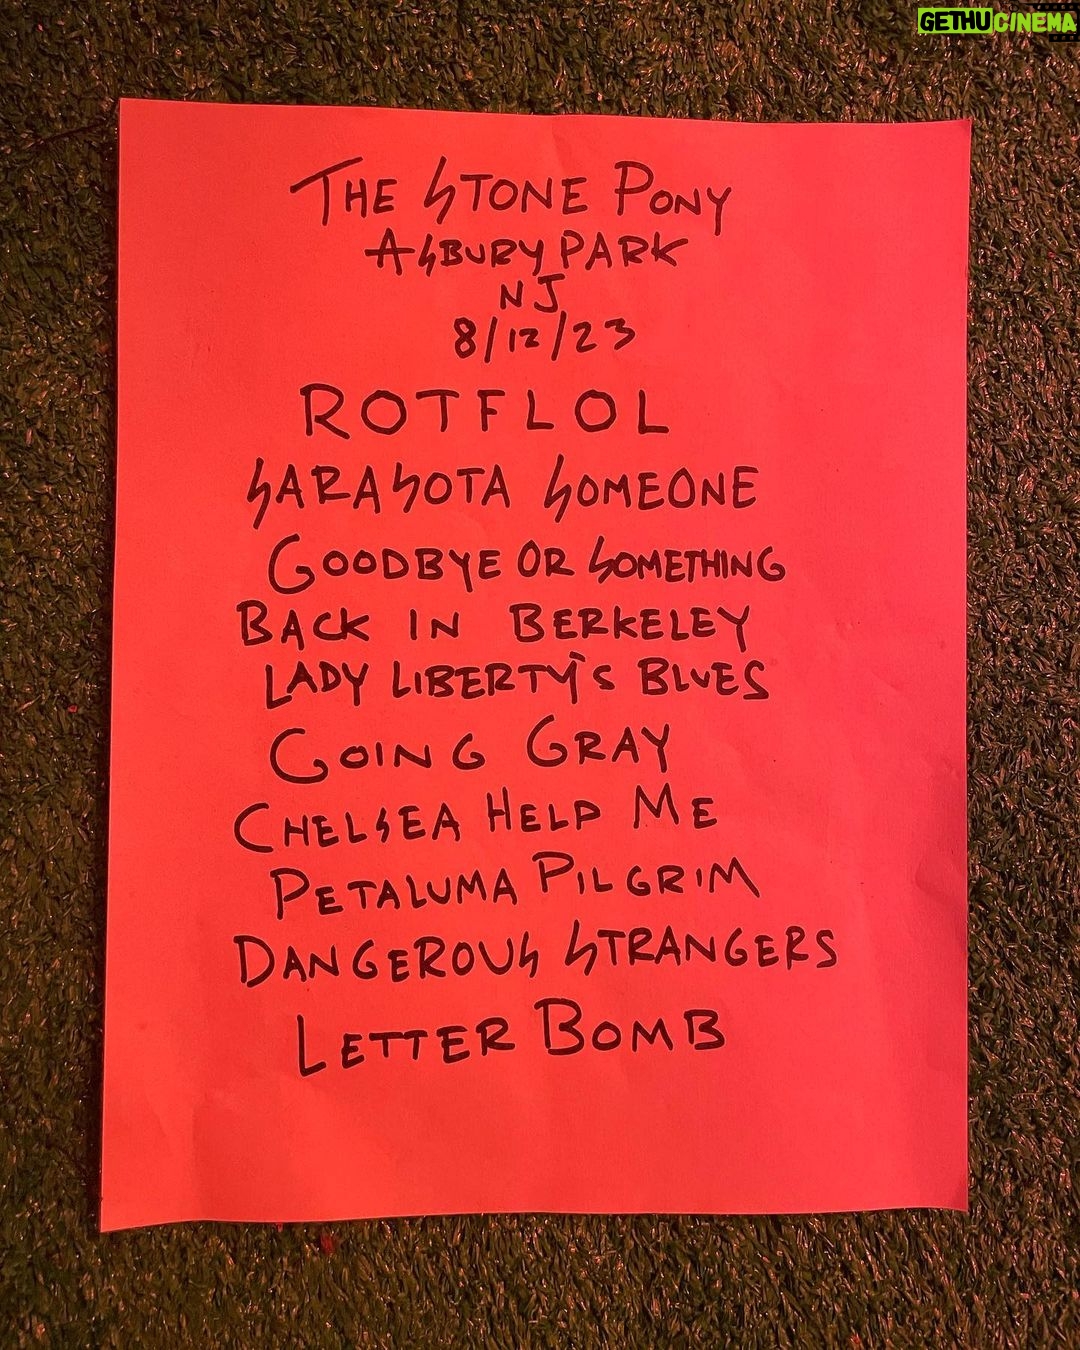 GETHUCINEMA
THE STONE PONY
ASBURY PARK
NJ
8/12/23
ROTFLOL
SARASOTA SOMEONE
GOODBYE OR SOMETHING
BACK IN BERKELEY
LADY LIBERTY'S BLUES
GOING GRAY
CHELSEA HELP ME
PETALUMA PILGRIM
DANGEROUS STRANGERS
LETTER BOMB